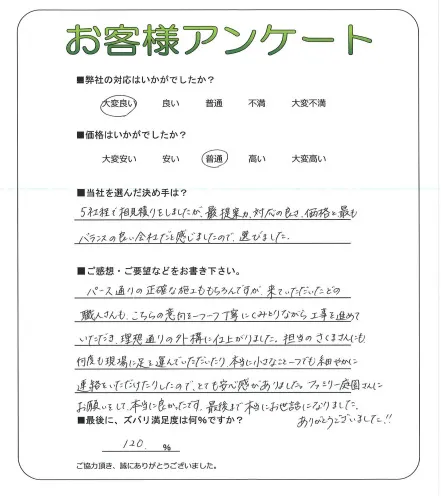 お客様アンケート
■弊社の対応はいかがでしたか?
大変良い 良い 普通 不満 大変不満
■価格はいかがでしたか?
大変安い 安い 普通 高い 大変高い
■当社を選んだ決め手は?
5社程で相見積りをしましたが、提案力、対応の良さ、価格と最も
バランスの良い会社だと感じましたので、選びました。
■ご感想・ご要望などをお書き下さい。
パース通りの正確な施工ももちろんですが、来ていただいたどの
職人さんも、こちらの意向を一つ一つ丁寧にくみとりながら工事を進めて
いただき、理想通りの外構に仕上がりました。担当のさくまさんにも
何度も現場に足を運んでいただいたり、本当に小さなこと一つでも細やかに
連絡をいただけたりしたので、とても安心感がありました。ファミリー庭園さんに
お願いをして、本当に良かったです。最後まで本当にお世話になりました。
ありがとうございました!!
■最後に、ズバリ満足度は何%ですか?
120 %
ご協力頂き、誠にありがとうございました。